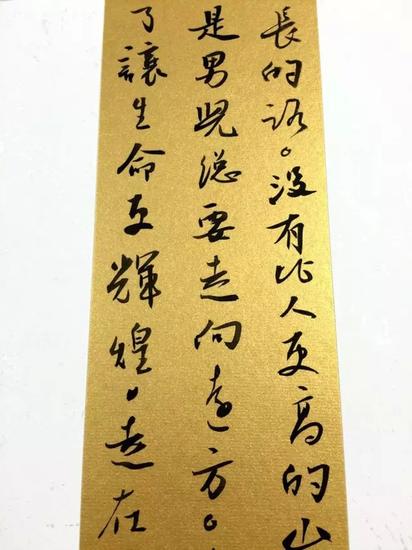 長的路。没有比人更高的山
是男兒總要走向遠方。
了讓生命更輝煌。走在